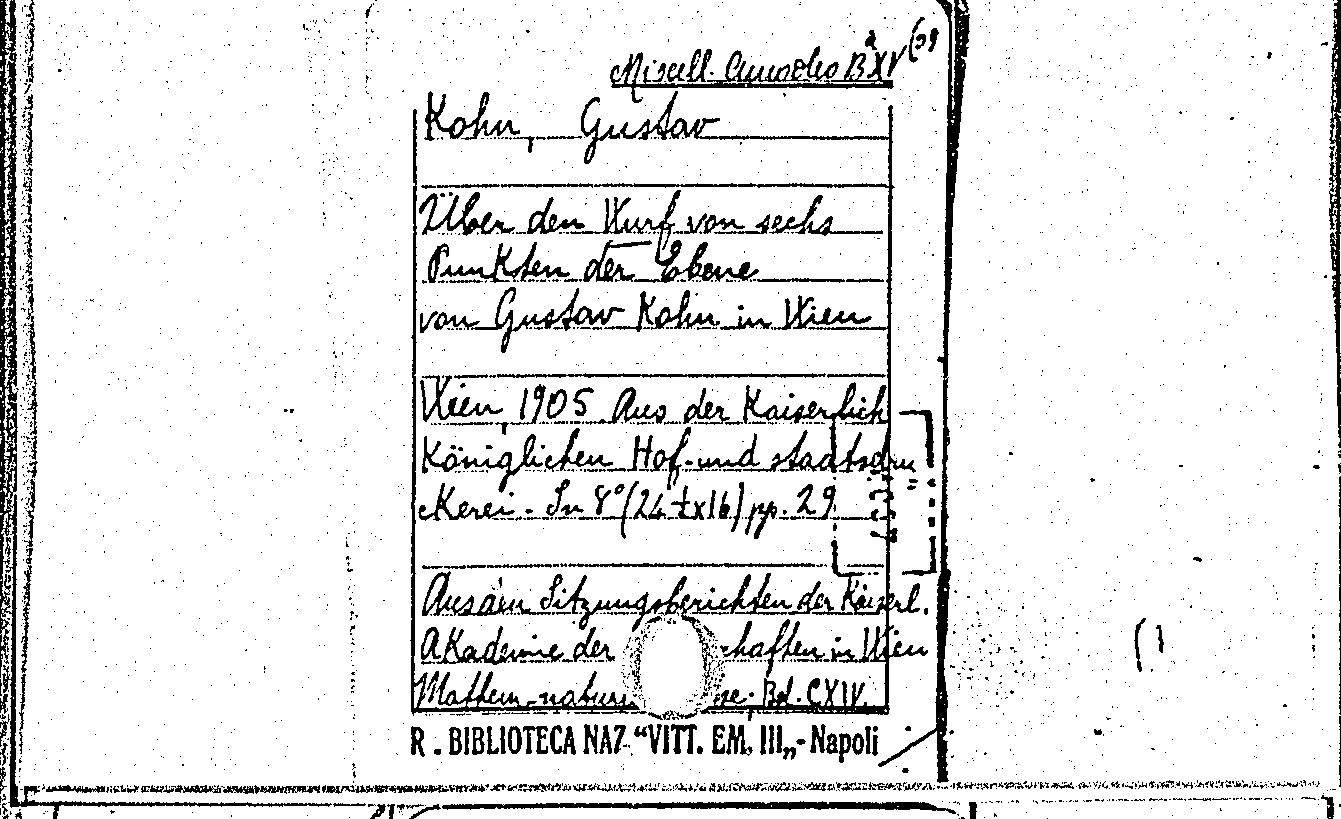 Miscell. Amodeo B XV (39
Kohn, Gustav
Über den Wurf von sechs
Punkten der Ebene
von Gustav Kohn in Wien
Wien, 1905. Aus der Kaiserlich
Königlichen Hof-und staatsdru
ckerei - In 8° (24 ½x16) pp. 29
Aus den Sitzungsberichten der Kaiserl.
Akademie der chaften in Wien
Mathem-naturw Bd. CXIV.
R. BIBLIOTECA NAZ. "VITT. EM. III„- Napoli